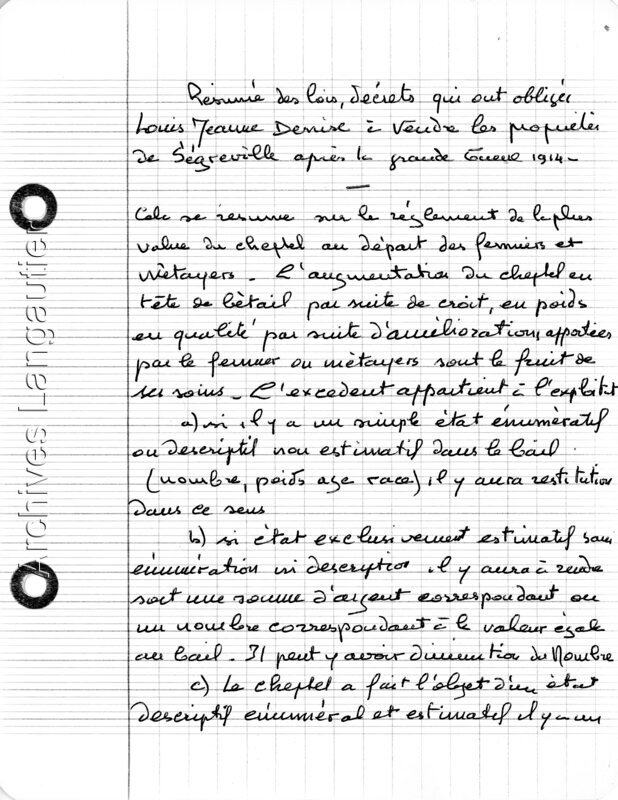 Résumé des lois, décrets qui ont obligés
Louis Jeanne Denise à vendre les propriétés
de Ségreville après la grande Guerre 1914 -
Cela se résume sur le règlement de la plus
value du cheptel au départ des fermiers et
métayers - L'augmentation du cheptel en
tête de bétail par suite de croit, en poids
en qualité par suite d'amélioration, apportées
par le fermier ou métayers sont le fruit de
ses soins - L'excedent appartient à l'exploitt
a) si il y a un simple état énumératif
ou descriptif non estimatif dans le bail
(nombre, poids age race) il y aura restitution
dans ce sens
b) si état exclusivement estimatif sans
énumération ni description il y aura à rendre
soit une somme d'argent correspondant ou
un nombre correspondant à la valeur égale
au bail - Il peut y avoir diminution du Nombre
c) Le cheptel a fait l'objet d'un état
descriptif énuméral et estimatif il y a un
Archives Langautier